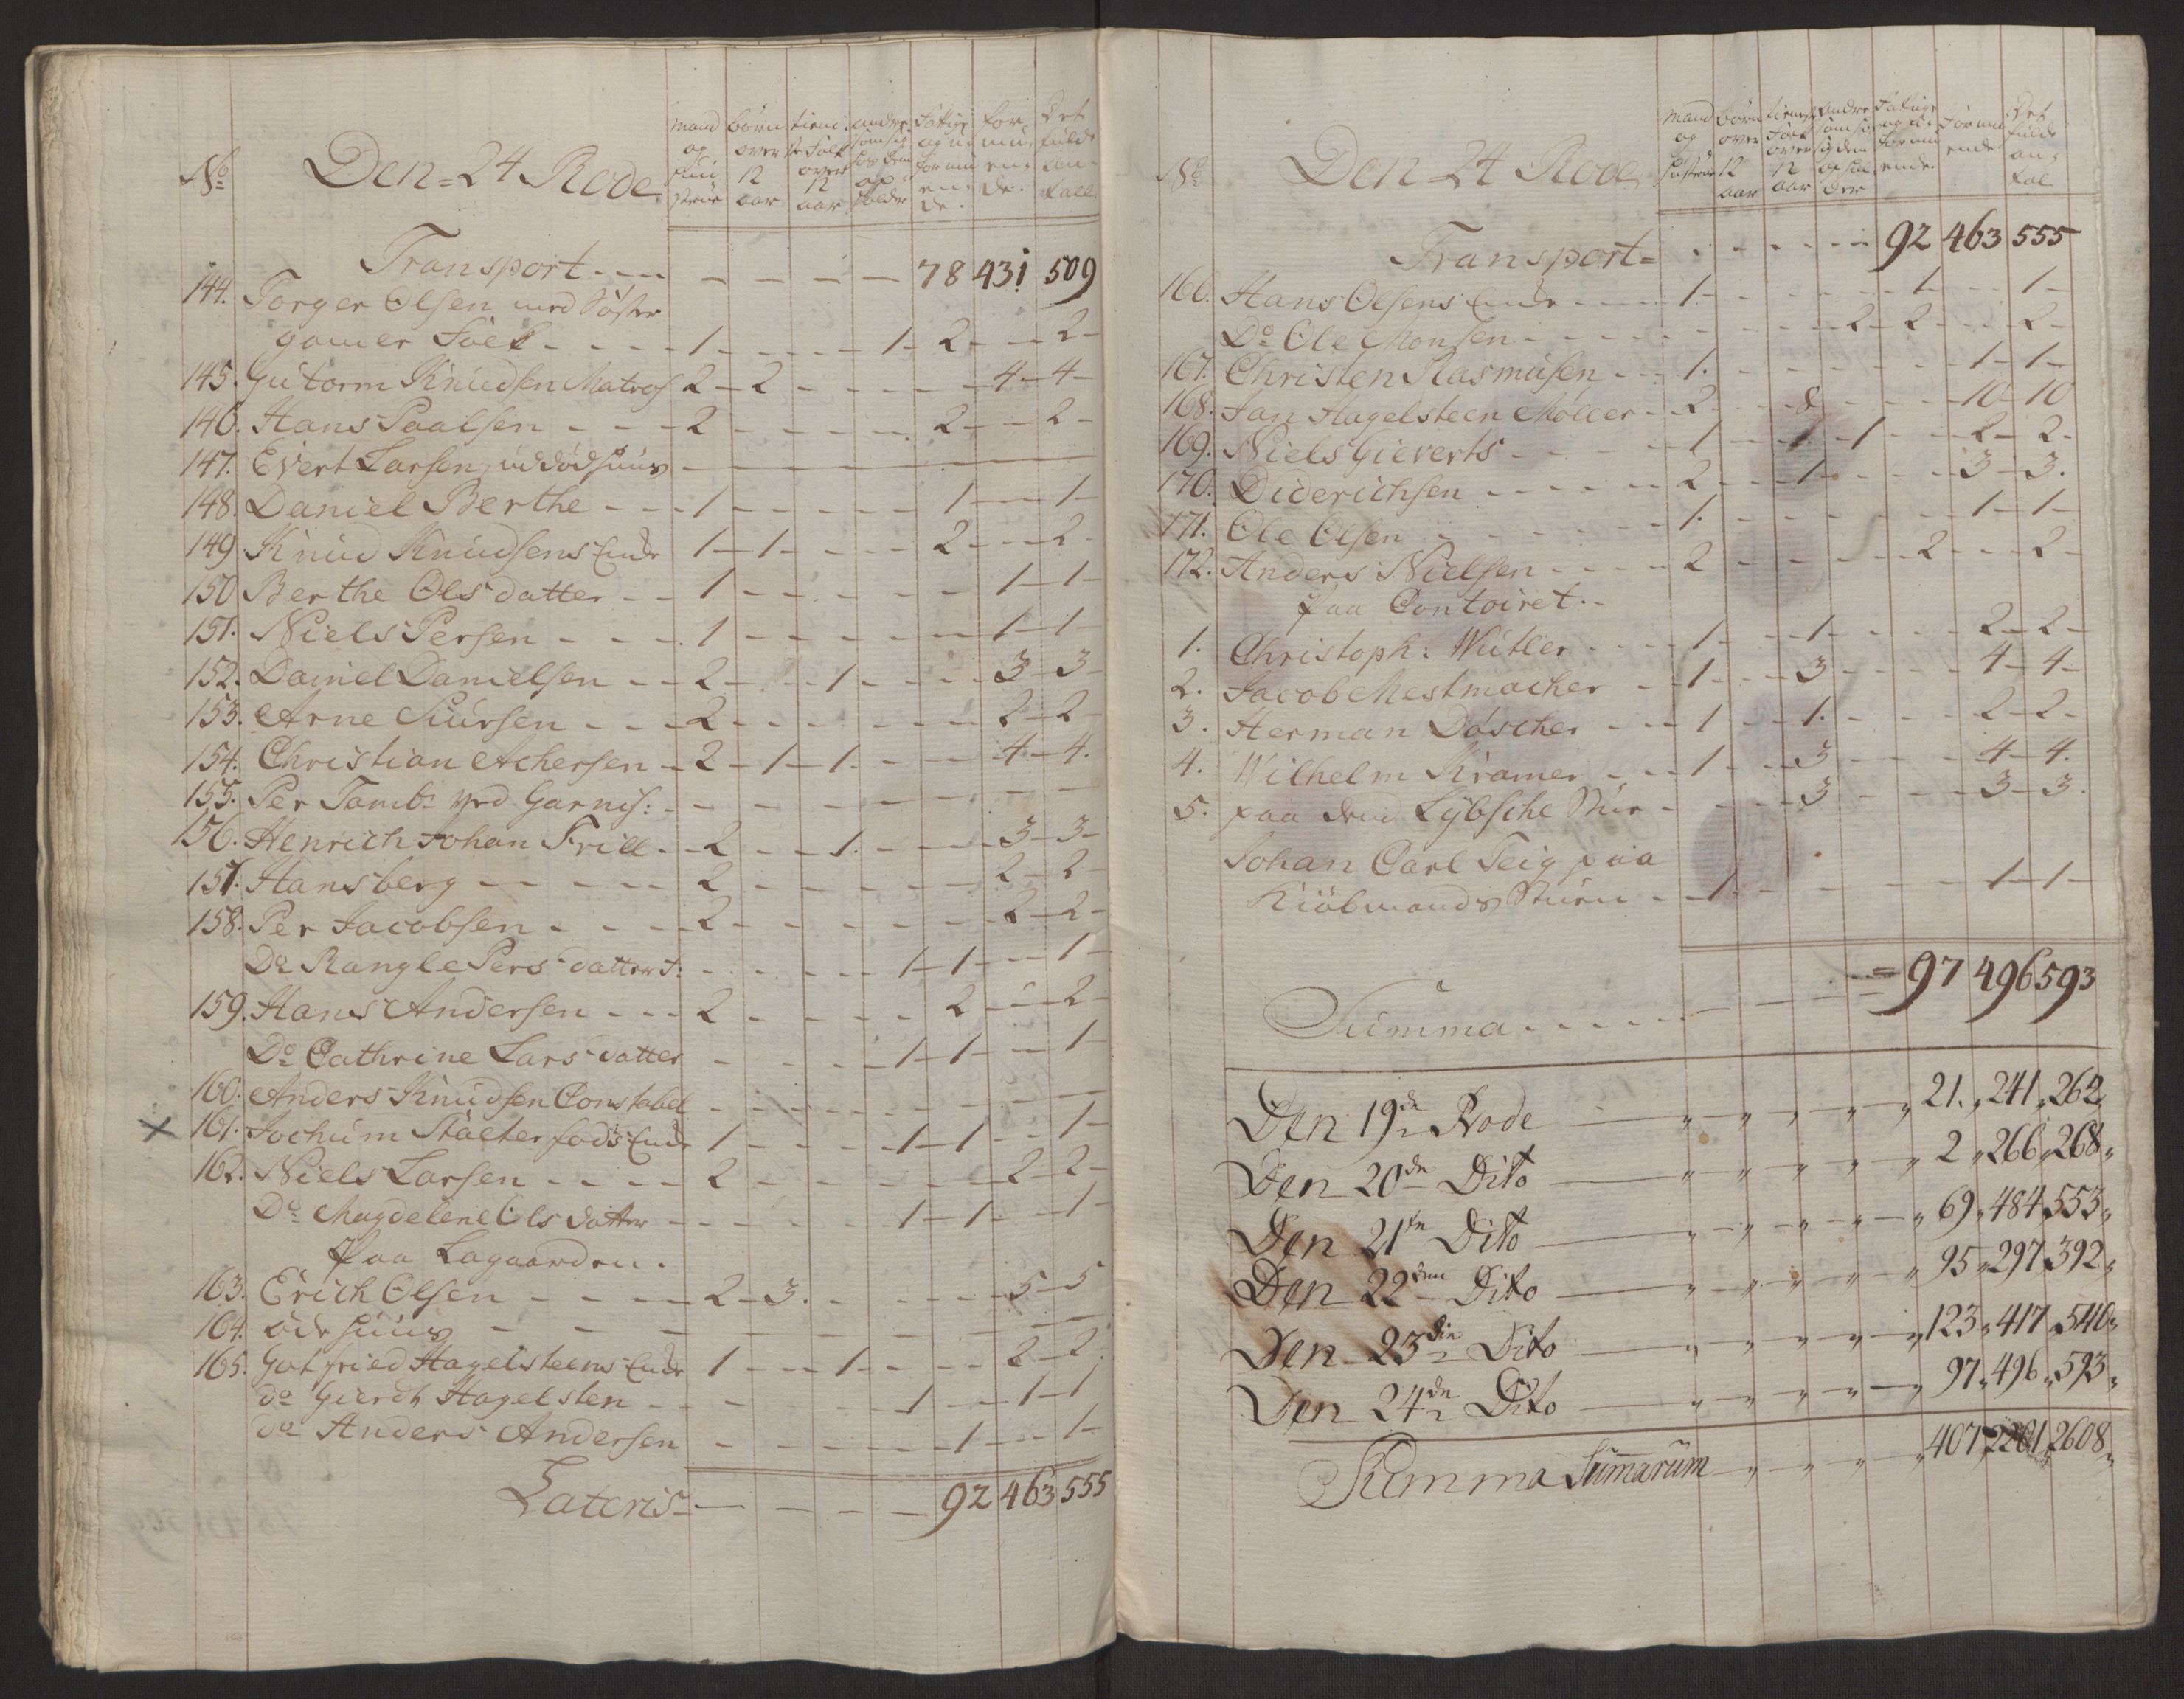 No Den 24 Rode mand og Hustrue | børn over 12 aar | tieniste Folk over 12 aar | andre som sig hos dem op holder | Fattige og u formu ende | for mu ende | Det fulde an tall
Transport - - - - - - 78 431 509
144. Torger Olsen med Søster
gamer Folk - - - - 1 - - - 1 - 2 - - 2 -
145. Gutorm Knudsen Matros 2 - 2 - - - - 4 - 4 -
146. Hans Paalsen - - - 2 - - - - 2 - - 2 -
147. Evert Larsen uddød huus - - - - - - -
148. Daniel Berthe - - - 1 - - - - 1 - - 1 -
149 Knud Knudsens Enke 1 - 1 - - - 2 - - 2 -
150 Berthe Olsdatter - - 1 - - - - - 1 - 1 -
151. Niels Persen - - - 1 - - - - - 1 - 1
152. Dainel Danielsen - - 2 - - 1 - - - 3 - 3 -
153. Arne Siursen - - - 2 - - - - - 2 - 2 -
154. Christian Achersen - 2 - 1 - 1 - - - 4 - 4.
155. Per Tamb: ved Garnis: - - - - - - -
156. Henrich Johan Frill - 2 - - 1 - - - 3 - 3 -
157. Hansberg - - - - 2 - - - - - 2 - 2
158. Per Jacobsen - - - 2 - - - - - 2 - 2 -
Do Rangle Pers datter - - - - - 1 - 1 - - 1 -
159. Hans Andersen - - - 2 - - - - 2 - - 2 -
Do Cathrine Lars datter - - - 1 - 1 - - 1 -
160. Anders Knudsen Constabel - - - - - - -
x 161. Jochum Enke 1 - - - 1 - 1 - - 1 -
162. Niels Larsen - - - - 2 - - - - - 2 - 2 -
Do Magdelene Ols datter - - - - - 1 - 1 - - 1 -
Paa Lagaarden.
163. Erich Olsen - - - - 2 - 3. - - - - 5 - 5
164. øde huus - - - - - - -
165. Gotfried Hagelsteens Enke 1 - - 1 - - - 2 - 2
do Gierdt Hagelsten - - - - 1 - - 1 - 1
do Anders Andersen - - - - - 1 - - 1 -
Lateris - - - - - 92 463 555
No Den 24 Rode mand og Hustrue | Børn over 12 aar | tieneste Folk over 12 aar | Andre som sig hos dem op holl der | Fattige og U formu ende | Formu ende | Det fulde an tal
Transport - - - - - - 92 463 555
166. Hans Olsens Enke - - - 1. - - - - - 1 - - 1 -
Do Ole Monsen - - - - - - - - 2 - 2 - - 2 -
167. Christen Rasmusen - - 1. - - - - - 1 - 1 -
168. Jan Hagelsteen Møller - 2 - - 8 - - - 10 - 10
169. Niels Gieverts - - - - 1 - - 1 - 1 - - 2 - 2 -
170. Diderichsen - - - - - 2 - - 1 - - - 3 - 3.
171. Ole Olsen - - - - - 1. - - - - - 1 - 1 -
172. Anders Nielsen - - - - 2 - - - - 2 - - 2 -
Paa Contoiret.
1. Christoph: Wutler - - - 1 - - 1 - - - 2 - 2 -
2. Jacob Mestmacher - - 1 - - 3 - - - 4 - 4 -
3. Herman Döscher - - 1 - - 1. - - - 2 - 2 -
4. Wilhelm Kramer - - 1 - - 3 - - - 4 - 4.
5. paa den Lybsche Stur - - - - 3 - - - 3 - 3.
Johan Carl Teig paa
Kiøbmands Stuen - - 1 - - - - - 1 - 1 -
Summa - - - - - - 97 496 593
Den 19de Rode - " " " " " 21. 241 262
Den 20de Dito - " " " " " 2 266 268
Den 21te Dito - " " " " " 69 484 553
Den 22den Dito - " " " " " 95 297 392
Den 23die Dito - " " " " " 123 417 540
Den 24de Dito - " " " " " 97 496 593
Summa Sumarum - " " " " 407 2201 2608